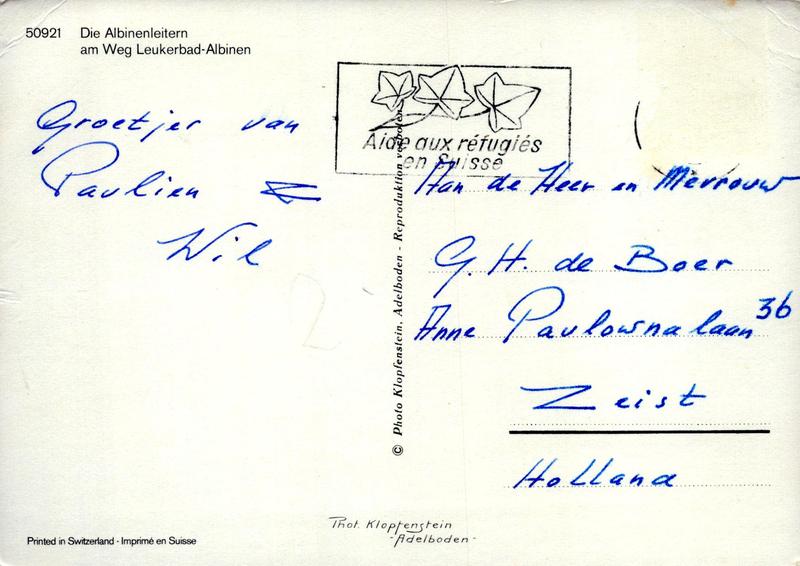 50921 Die Albinenleitern
am Weg Leukerbad-Albinen
Groetjer van
Paulien &
Wil
Aide aux réfugiés
en Suisse
© Photo Klopfenstein, Adelboden - Reproduktion verboten
Aan de Heer en Mevrouw
G. H. de Boer
Anne Paulownalaan 36
Zeist
Holland
Phot. Klopfenstein
- Adelboden -
Printed in Switzerland - Imprimé en Suisse